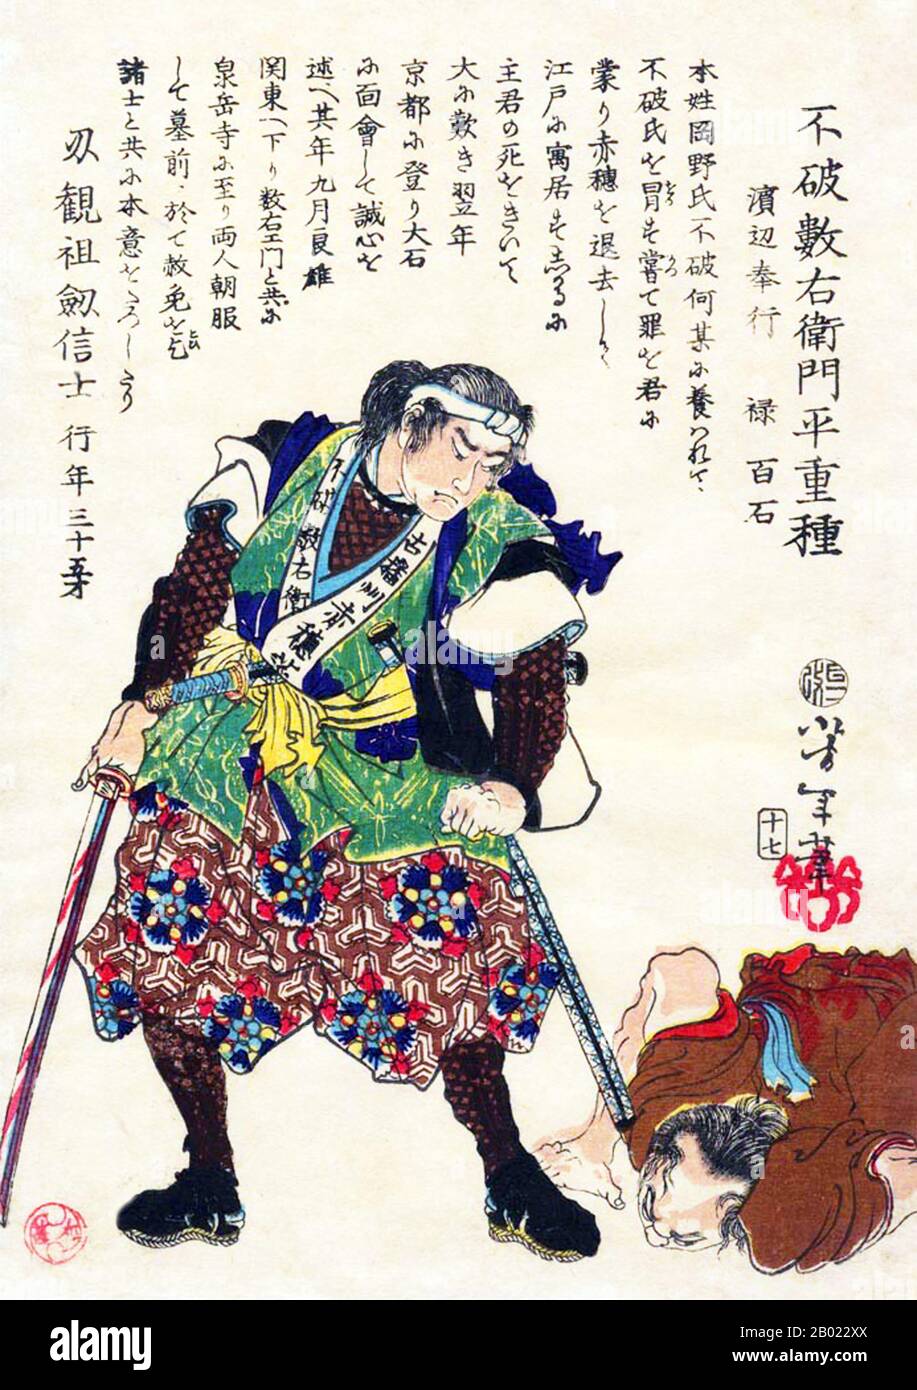 不破數右衛門平重種
濱辺奉行 禄 百石
本姓岡野氏不破何某に養はれて、
不破氏を冒す嘗て罪を君に
蒙り赤穂を退去し
江戸に寓居す志かるに
主君の死をきいて
大に歎き翌年
京都に登り大石
に面會して誠心を
述へ其年九月良雄
関東へ下り数右エ門と共に
泉岳寺に至り両人朝服
して墓前に於て赦免を乞
諸士と共に本意をたつしたり
刃観祖劔信士 行年三十五才
不破數右衛
播州赤穂
芳年筆
十七
alamy
Image ID: 2B022XX
www.alamy.com